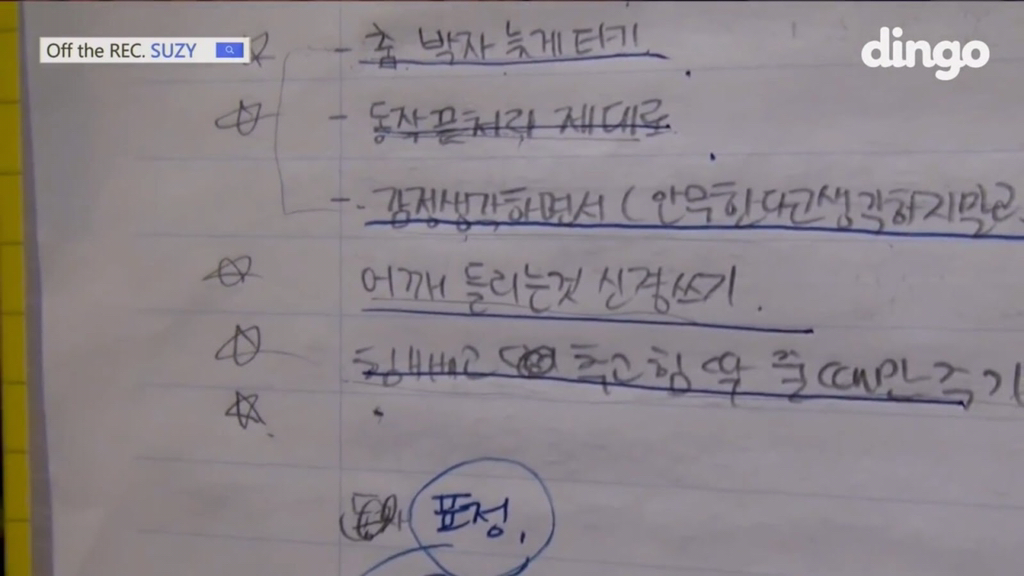 Off the REC. SUZY
dingo
- 춤 박자 늦게 타기
- 동작끝처리 제대로
- 감정생각하면서 (안무한다고생각하지말고
어깨 들리는것 신경쓰기.
힘빼고 추고 힘 딱 줄때만 주기
표정,